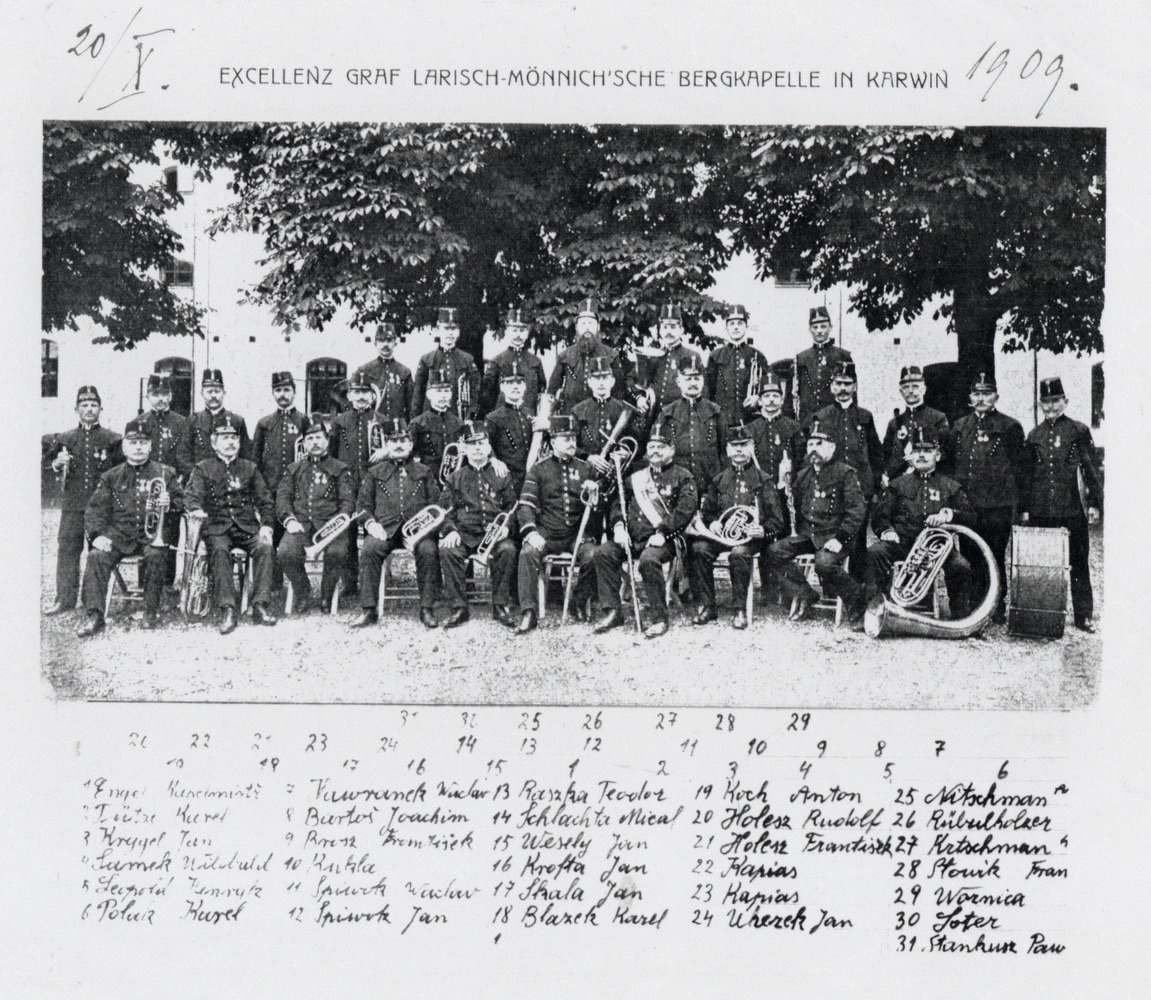 20/X. EXCELLENZ GRAF LARISCH-MÖNNICH'SCHE BERGKAPELLE IN KARWIN 1909.
31 32 25 26 27 28 29
22 21 23 24 14 13 12 11 10 9 8 7
19 18 17 16 15 1 2 3 4 5 6
1 Engel 7 Vawranek Waclav 13 Raszka Teodor 19 Koch Anton 25 Nitschman
2 Karel 8 Bartoš Joachim 14 Schlachta Mical 20 Holesz Rudolf 26 Rübulholzer
3 Krygel Jan 9 Brosz Frantisek 15 Wesely Jan 21 Holesz Frantisek 27 Krtschman
4 Samek 10 Kukla 16 Krofta Jan 22 Kapias 28 Słowik Fran
5 Leopold Henryk 11 Spiwok Waclav 17 Skala Jan 23 Kapias 29 Woznica
6 Polak Karel 12 Spiwok Jan 18 Blazek Karel 24 Uherek Jan 30 Soter
31. Stankusz Paw